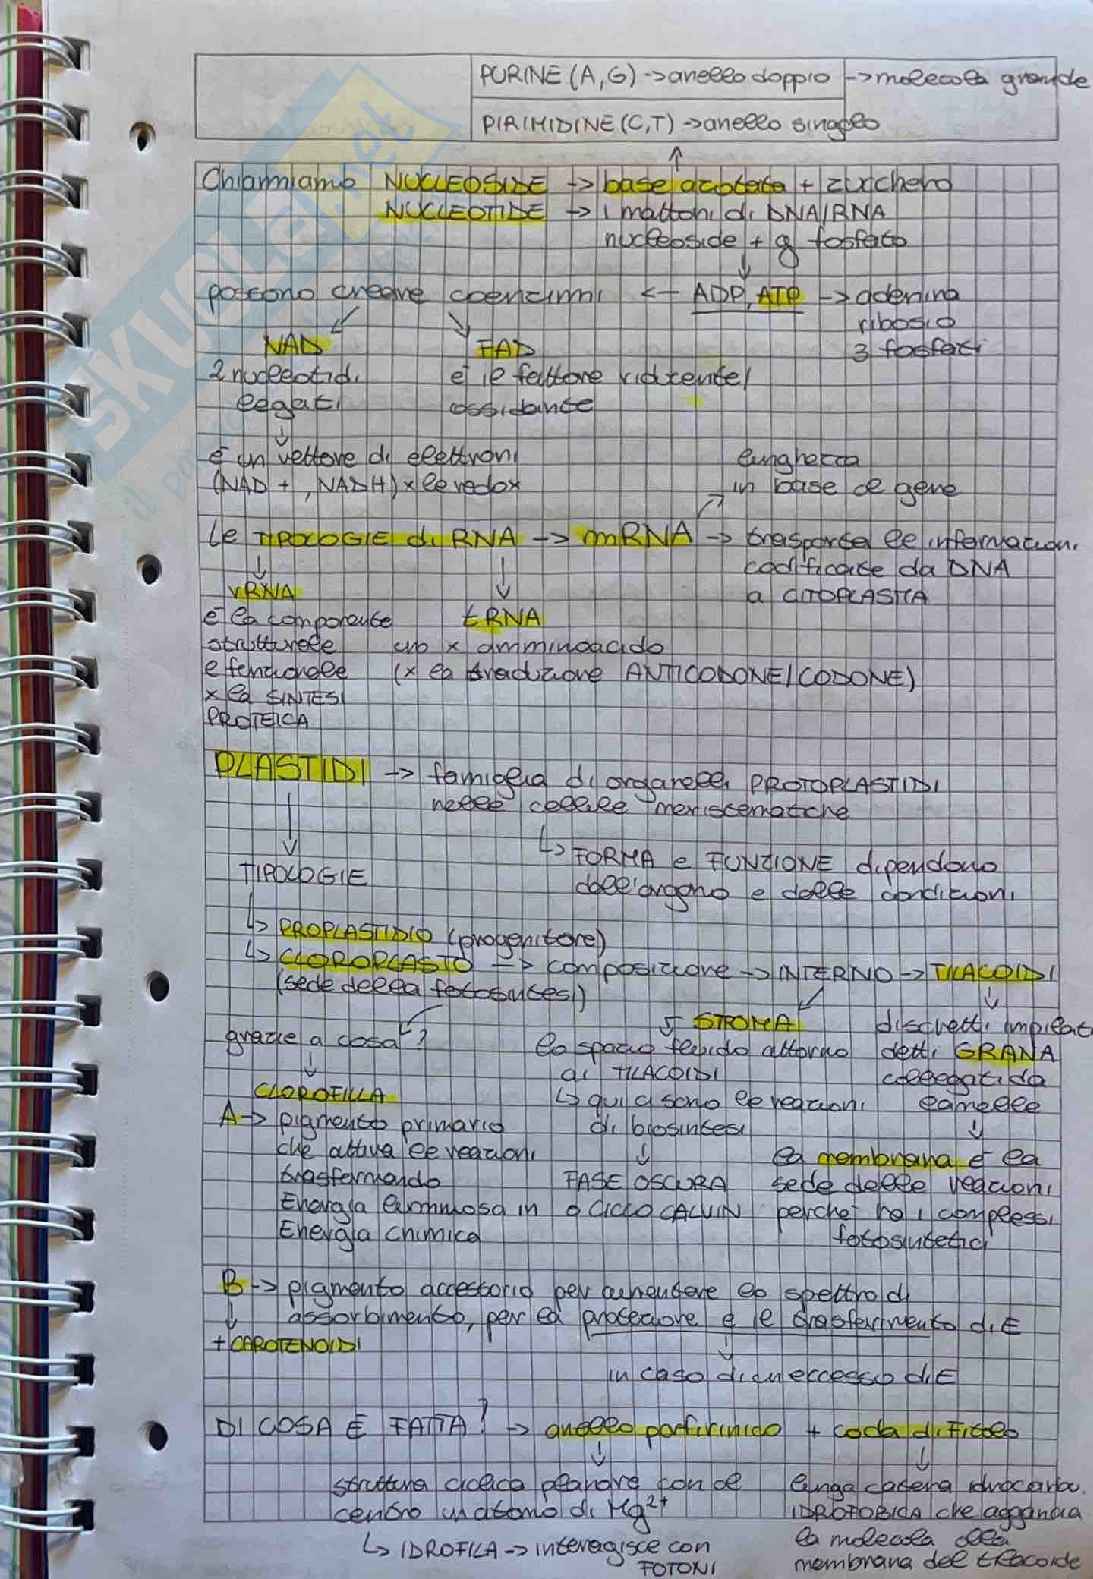 PURINE (A, G) → anello doppio → molecola grande
PIRIMIDINE (C,T) → anello singolo
Chiamiamo NUCLEOSIDE → base azotata + zucchero
NUCLEOTIDE → i mattoni di DNA/RNA
nucleoside + g fosfato
possono creare coenzimi ← ADP, ATP → adenina
ribosio
3 fosfati
NAD FAD
2 nucleotidi è il fattore riducente/
legati ossidante
è un vettore di elettroni lunghezza
(NAD+, NADH) x le redox in base al gene
Le TIPOLOGIE di RNA → mRNA → trasporta le informazioni
codificate da DNA
a CITOPLASMA
rRNA tRNA
è la componente
strutturale uno x amminoacido
e funzionale (x la traduzione ANTICODONE/CODONE)
x la SINTESI
PROTEICA
PLASTIDI → famiglia di organelli PROTOPLASTIDI
nelle cellule meristematiche
↳ FORMA e FUNZIONE dipendono
TIPOLOGIE dall'organo e dalle condizioni
↳ PROPLASTIDIO (progenitore)
↳ CLOROPLASTO → composizione → INTERNO → TILACOIDI
(sede della fotosintesi)
grazie a cosa? STROMA dischetti impilati
lo spazio fluido attorno detti GRANA
ai TILACOIDI collegati da
CLOROFILLA ↳ qui ci sono le reazioni lamelle
A → pigmento primario di biosintesi
che attiva le reazioni la membrana è la
trasformando FASE OSCURA sede delle reazioni
Energia luminosa in o CICLO CALVIN perché ha i complessi
Energia chimica fotosintetici
B → pigmento accessorio per aumentare lo spettro di
assorbimento, per la protezione e il trasferimento di E
+ CAROTENOIDI
in caso di un eccesso di E
DI COSA È FATTA? → anello porfirinico + coda di Fitolo
struttura ciclica planare con al lunga catena idrocarbu.
centro un atomo di Mg²⁺ IDROFOBICA che aggancia
↳ IDROFILA → interagisce con la molecola alla
FOTONI membrana del tilacoide
SKUOLA.net